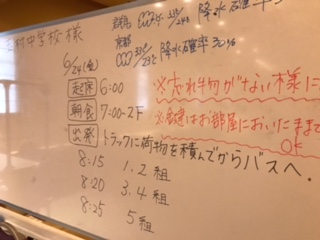 村中学校様
京都 33℃/23℃ 降水確率30%
降水確率
6/24(金)
起床 6:00
※忘れ物がない様に
朝食 7:00~2F
はお部屋においたままで OK
出発 トラックに荷物を積んでからバスへ。
8:15 1.2組
8:20 3.4組
8:25 5組